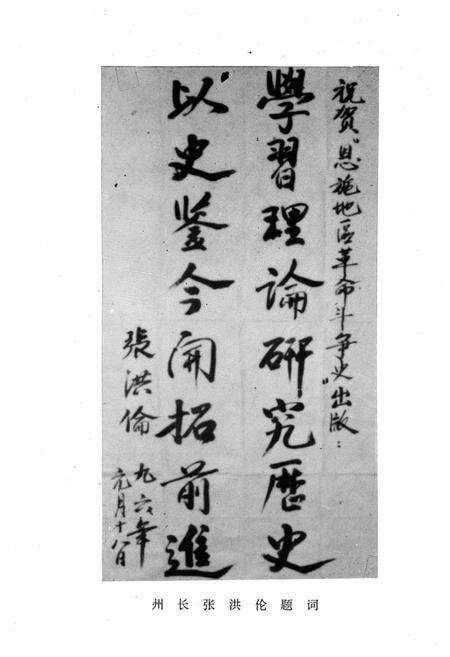 祝贺"恩施地區革命斗争史"出版：
學習理論研究歷史
以史鉴今開拓前進
張洪倫
九六年
元月十八日
州长张洪伦题词